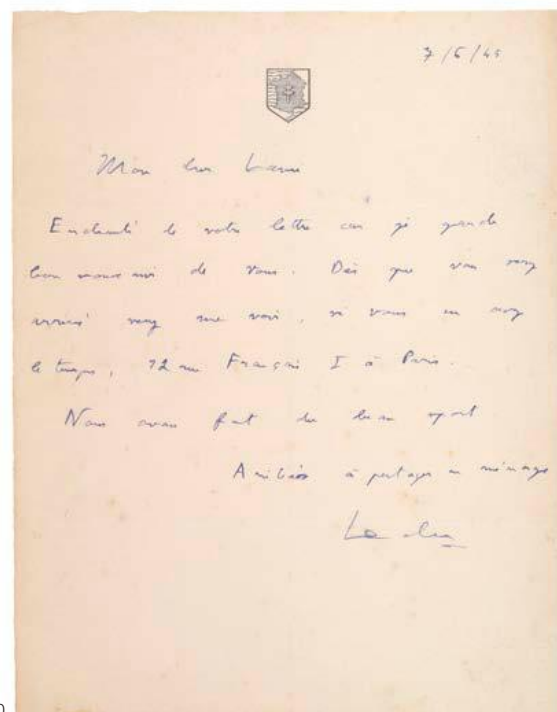 7/6/45
Mon cher
Enchanté de votre lettre car je garde
bon souvenir de vous. Dès que vous serez
arrivé venez me voir, si vous en avez
le temps, 12 rue François I à Paris.
Nous avons fait du beau sport
Amitiés à partager en ménage